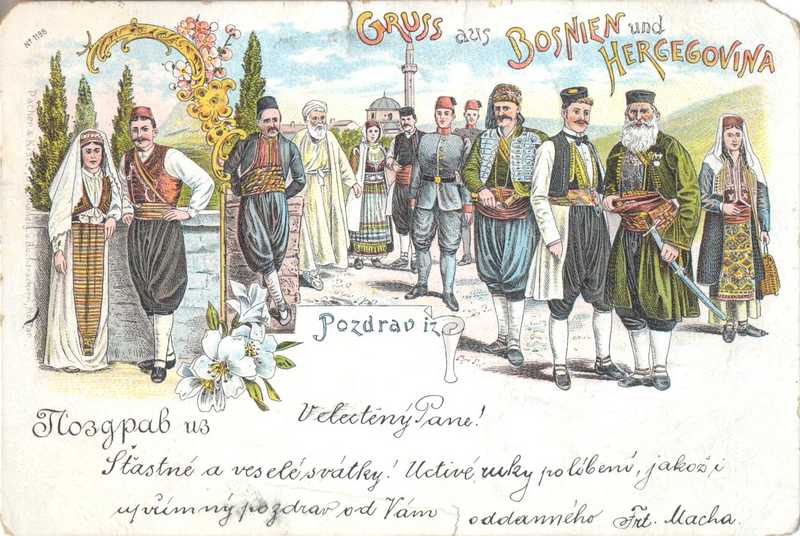 Nº 1198
GRUSS aus BOSNIEN und
HERCEGOVINA
Pozdrav iz
Поздрав из
Velectěný Pane!
Šťastné a veselé svátky! Uctivé ruky políbení, jakož i
upřímný pozdrav od Vám oddanného Frt. Macha.